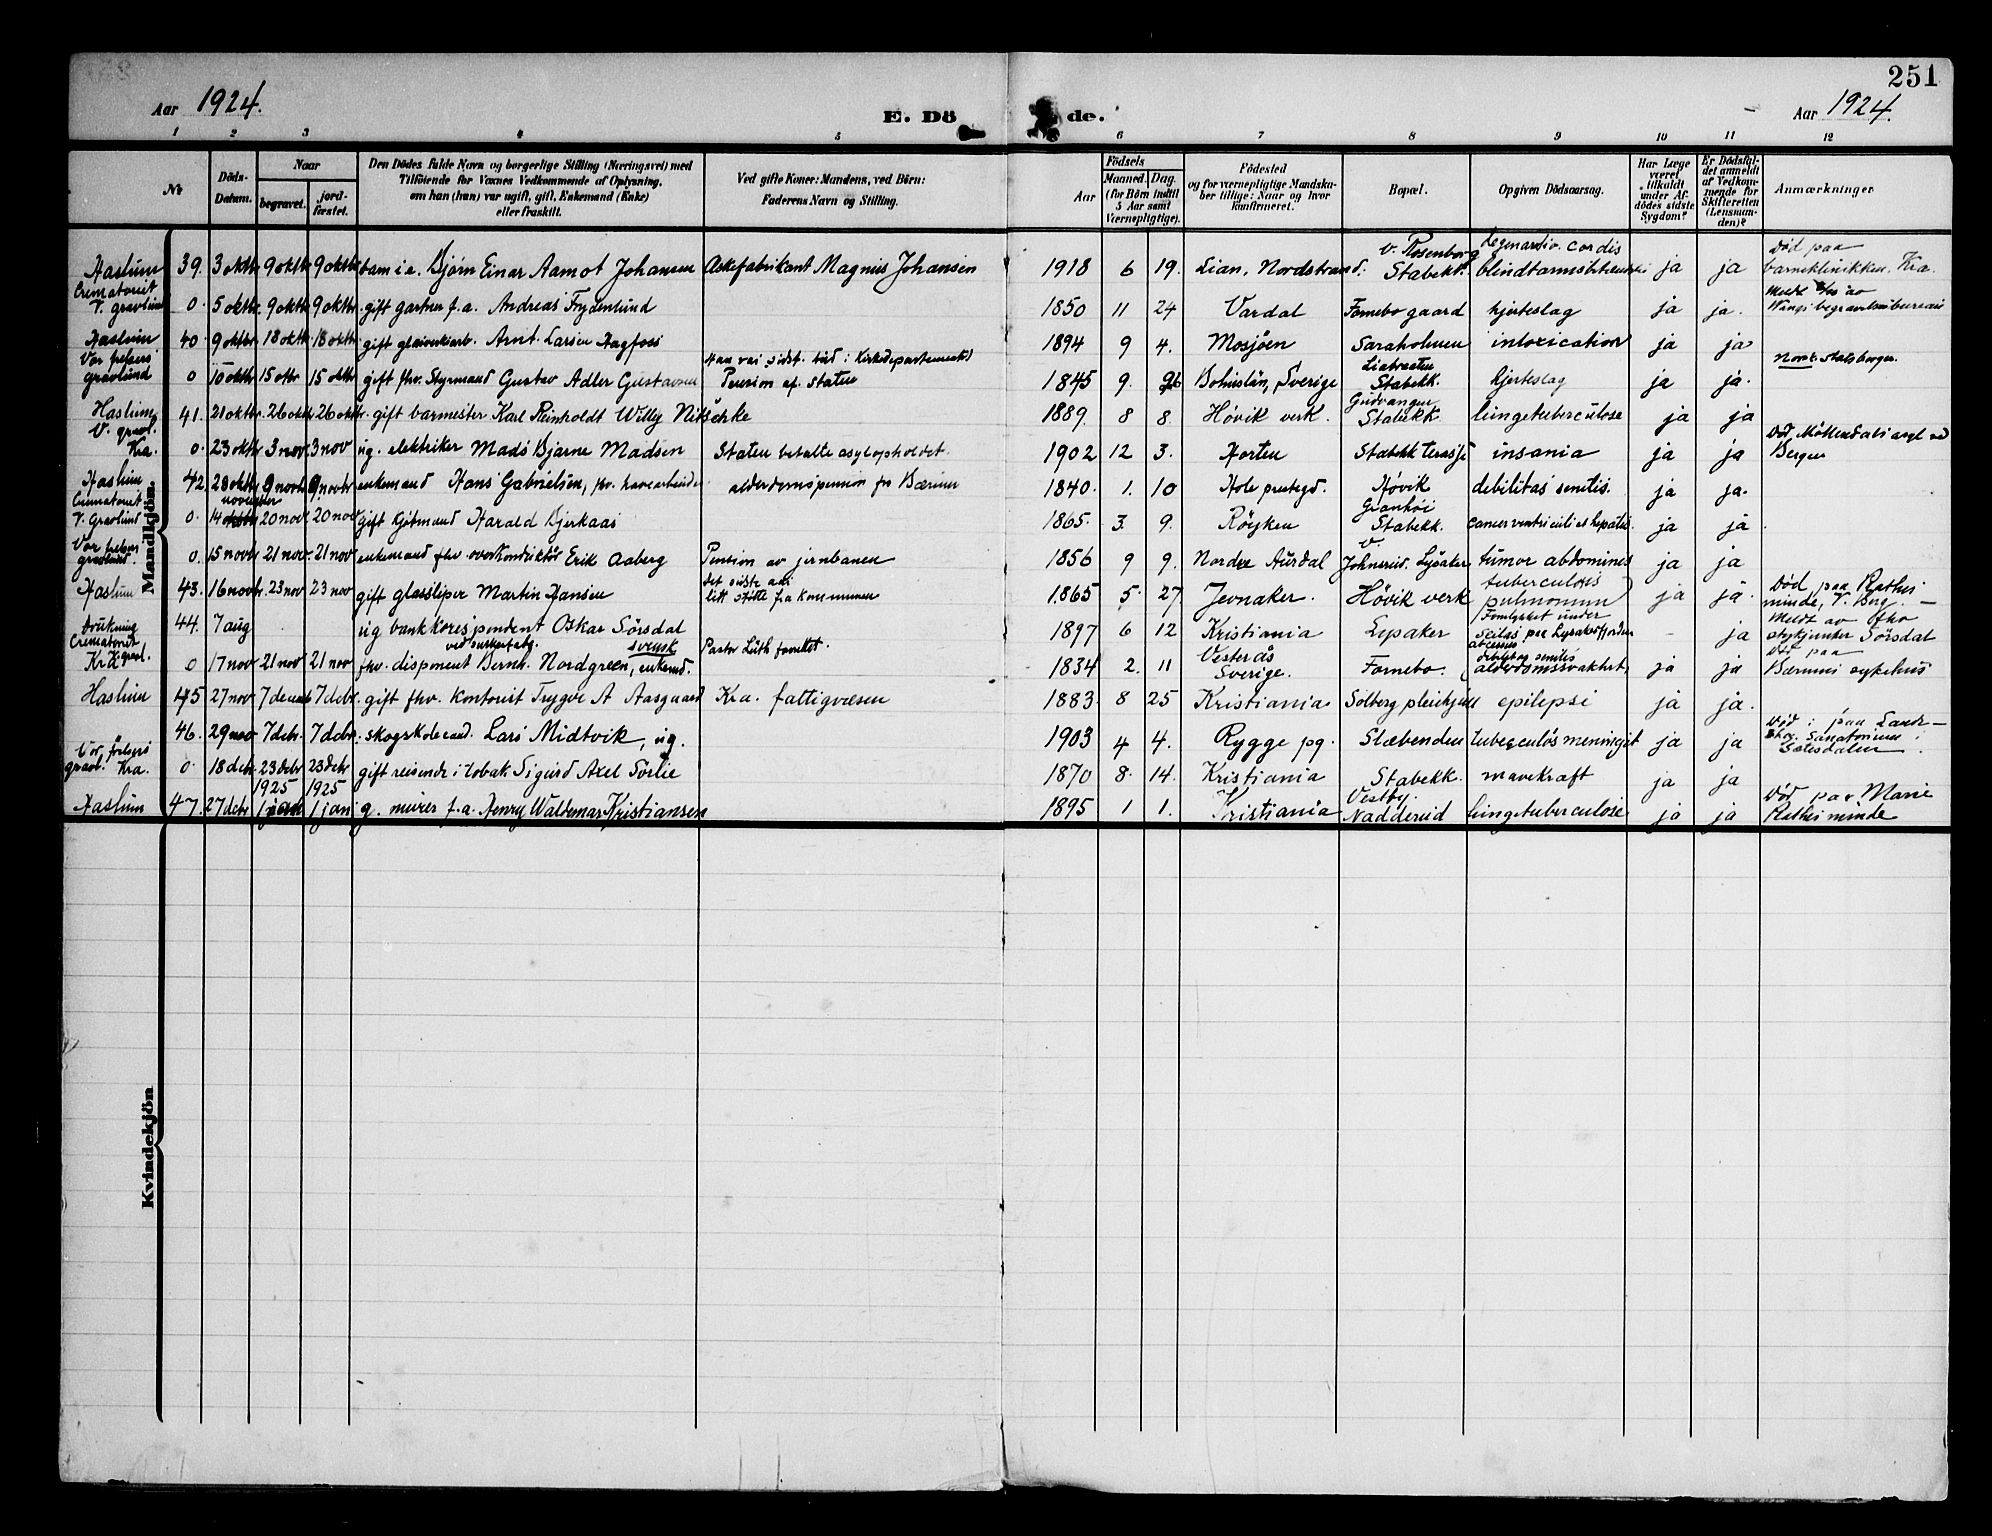 251
Aar 1924. E. Dö de. Aar 1924.
1 2 3 4 5 6 7 8 9 10 11 12
No
Döds-Datum.
Naar
begravet.
jord-fæstet.
Den Dödes fulde Navn og borgerlige Stilling (Næringsvei) med
Tilföiende for Voxnes Vedkommende af Oplysning,
om han (hun) var ugift, gift, Enkemand (Enke)
eller fraskilt.
Ved gifte Koner: Mandens, ved Börn:
Faderens Navn og Stilling.
Födsels
Aar
Maaned. Dag.
(for Börn indtil
5 Aar samt
Værnepligtige).
Födested
og for værnepligtige Mandska-
ber tillige: Naar og hvor
konfirmeret.
Bopæl.
Opgiven Dödsaarsag.
Har Læge
været
tilkaldt
under Af-
dödes sidste
Sygdom?
Er Dödsfal-
det anmeldt
af Vedkom-
mende for
Skifteretten
(Lensman-
den)?
Anmærkninger
Mandkjön.
Haslum 39. 3 oktbr 9 oktbr 9 oktbr Bjørn Einar Aamot Johansen Askefabrikant Magnus Johansen 1918 6 19. Lian, Nordstrand. v. Rosenborg Stabekk. cordis ja ja Død paa barneklinikken, Kra.
Crematoriet V. gravlund 0. 5 oktbr 9 oktbr 9 oktbr gift gartner f.a. Andreas Frydenlund 1850 11 24 Vardal Fornebo gaard hjerteslag ja ja. begravelsesbureau
Haslum 40. 9 oktbr 18 oktbr 18 oktbr gift glasverkarb. Arnt Larsen Hagfoss 1894 9 4. Mosjøen Saraholmen intoxication ja ja
Vor frelsers gravlund 0 10 oktbr 15 otbr 15 oktbr gift fhv. Styrmand Gustav Adler Gustavsen Han var sidst bud i Kirkedepartementet Pension af staten 1845 9. 26 Bohuslän, Sverige Stabekk. hjerteslag ja ja. Norsk statsborger.
Haslum V. gravl. 41. 21 oktbr 26 oktbr 26 oktbr. gift varmester Karl Reinholdt Willy Nitschke 1889. 8 8. Høvik verk. Gudvangen Stabekk. lungetuberculose ja ja
Kra. 0. 23 oktbr 3 nov 3 nov ug. elektriker Mads Bjarne Madsen Staten betalte asylopholdet. 1902 12 3. Horten Stabekk terasse insania ja ja Død Møllendals asyl ved Bergen
Haslum 42. 28 oktbr 9 novbr 9 novbr enkemand Hans Gabrielsen, fhv. havearbeider alderdomspension fra Bærum 1840. 1. 10 Hole prestegd. Høvik debilitas senilis. ja ja.
Crematoriet V. Gravlund 0. 14 november 20 nov 20 nov gift kjøbmand Harald Bjerkaas 1865. 3. 9. Røyken Granhøi Stabekk. cancer ventriculi et hepatis. ja ja
Vor frelsers gravlund. 0. 15 novbr 21 nov 21 nov enkemand fhv overkonduktør Erik Aaberg Pension av jernbanen 1856 9 9. Nordre Aurdal v. Lysaker tumor abdominis ja ja
Haslum 43. 16 novbr. 23 nov 23 nov gift glassliper Martin Hansen det sidste aar litt støtte fra kommunen 1865 5. 27. Jevnaker. Høvik verk tuberculosis pulmonum ja ja. Død paa Rathes minde, V. Bærg.
Drukning 44. 7 aug ug bankkorrespondent Oskar Sörsdal 1897 6 12 Kristiania Lysaker Forulykket under seilas paa Lysakerfjorden - ja Meldt av Sörsdal
Crematoriet Kr. gravl. 0 17 nov 21 nov 21 nov fhv. disponent ved Bernh. Nordgreen, svensk enkemd. Pastor Lüth forrettet. 1834 2. 11 Vesterås Sverige. Fornebo. debilitas senilis alderdomssvakhet. ja ja Død paa Bærums sykehus
Haslum 45 27 nov 7 decbr 7 decbr gift fhv. kontorist Trygve A Aasgaard Kra. fattigvæsen 1883 8 25 Kristiania Solberg pleiehjem epilepsi ja ja.
46. 29 nov 7 debr. 7 debr. Lars Midtvik, ug. 1903 4 4. Rygge pg. Slæbenden tuberculøs meningit ja ja Død paa Landeskog Sanatorium i Setesdalen
Vor frelsers gravl. Kra. 0. 18 debr 23 debr 23 debr gift reisende i tobak Sigurd Axel Sörlie 1870 8. 14. Kristiania Stabekk. mavekræft ja ja
Haslum 47. 27 decbr 1925 1 jan 1925 1 jan g. murer f.a. Henry Waldemar Kristiansen 1895 1 1. Kristiania Vestby, Nadderud lungetuberculose ja ja Død paa Marie Rathes minde
Kvindekjön